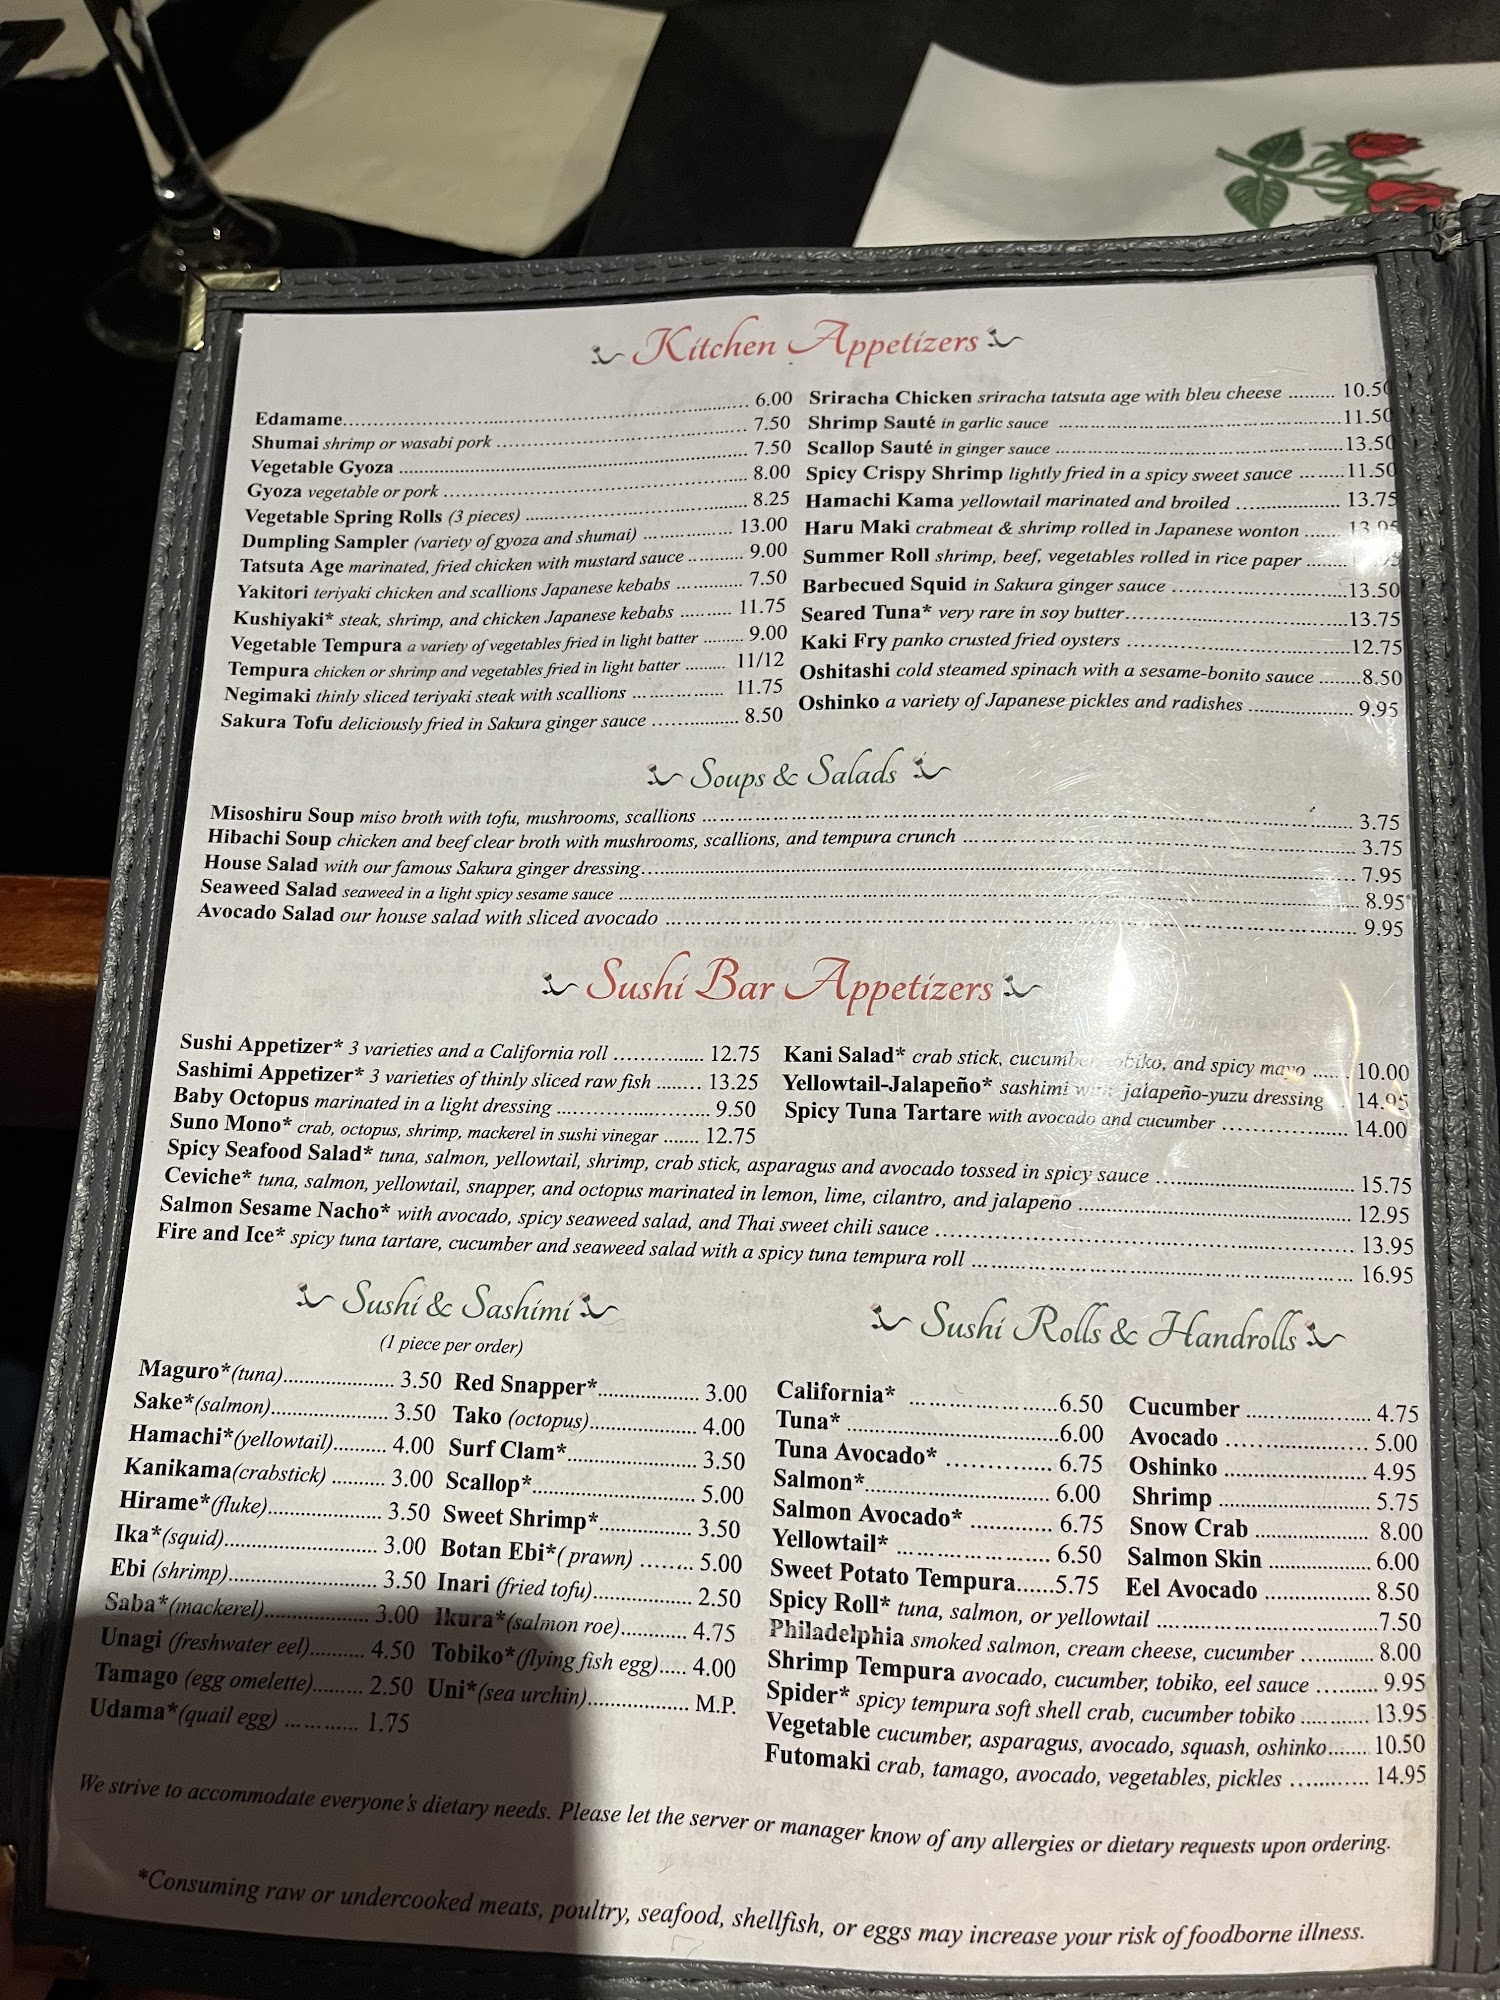 Kitchen Appetizers
Edamame.......... 6.00
Shumai shrimp or wasabi pork .......... 7.50
Vegetable Gyoza .......... 7.50
Gyoza vegetable or pork .......... 8.00
Vegetable Spring Rolls (3 pieces) .......... 8.25
Dumpling Sampler (variety of gyoza and shumai) .......... 13.00
Tatsuta Age marinated, fried chicken with mustard sauce .......... 9.00
Yakitori teriyaki chicken and scallions Japanese kebabs .......... 7.50
Kushiyaki* steak, shrimp, and chicken Japanese kebabs .......... 11.75
Vegetable Tempura a variety of vegetables fried in light batter .......... 9.00
Tempura chicken or shrimp and vegetables fried in light batter .......... 11/12
Negimaki thinly sliced teriyaki steak with scallions .......... 11.75
Sakura Tofu deliciously fried in Sakura ginger sauce .......... 8.50
Sriracha Chicken sriracha tatsuta age with bleu cheese .......... 10.50
Shrimp Sauté in garlic sauce .......... 11.50
Scallop Sauté in ginger sauce .......... 13.50
Spicy Crispy Shrimp lightly fried in a spicy sweet sauce .......... 11.50
Hamachi Kama yellowtail marinated and broiled .......... 13.75
Haru Maki crabmeat & shrimp rolled in Japanese wonton .......... 13.95
Summer Roll shrimp, beef, vegetables rolled in rice paper ..........
Barbecued Squid in Sakura ginger sauce .......... 13.50
Seared Tuna* very rare in soy butter.......... 13.75
Kaki Fry panko crusted fried oysters .......... 12.75
Oshitashi cold steamed spinach with a sesame-bonito sauce .......... 8.50
Oshinko a variety of Japanese pickles and radishes .......... 9.95
Soups & Salads
Misoshiru Soup miso broth with tofu, mushrooms, scallions .......... 3.75
Hibachi Soup chicken and beef clear broth with mushrooms, scallions, and tempura crunch .......... 3.75
House Salad with our famous Sakura ginger dressing.......... 7.95
Seaweed Salad seaweed in a light spicy sesame sauce .......... 8.95
Avocado Salad our house salad with sliced avocado .......... 9.95
Sushi Bar Appetizers
Sushi Appetizer* 3 varieties and a California roll .......... 12.75
Sashimi Appetizer* 3 varieties of thinly sliced raw fish .......... 13.25
Baby Octopus marinated in a light dressing .......... 9.50
Suno Mono* crab, octopus, shrimp, mackerel in sushi vinegar .......... 12.75
Kani Salad* crab stick, cucumber, tobiko, and spicy mayo .......... 10.00
Yellowtail-Jalapeño* sashimi with jalapeño-yuzu dressing .. 14.95
Spicy Tuna Tartare with avocado and cucumber .......... 14.00
Spicy Seafood Salad* tuna, salmon, yellowtail, shrimp, crab stick, asparagus and avocado tossed in spicy sauce .......... 15.75
Ceviche* tuna, salmon, yellowtail, snapper, and octopus marinated in lemon, lime, cilantro, and jalapeño .......... 12.95
Salmon Sesame Nacho* with avocado, spicy seaweed salad, and Thai sweet chili sauce .......... 13.95
Fire and Ice* spicy tuna tartare, cucumber and seaweed salad with a spicy tuna tempura roll .......... 16.95
Sushi & Sashimi
(1 piece per order)
Maguro*(tuna).......... 3.50
Sake*(salmon).......... 3.50
Hamachi*(yellowtail).......... 4.00
Kanikama(crabstick) .......... 3.00
Hirame*(fluke).......... 3.50
Ika*(squid).......... 3.00
Ebi (shrimp).......... 3.50
Saba*(mackerel).......... 3.00
Unagi (freshwater eel).......... 4.50
Tamago (egg omelette).......... 2.50
Udama*(quail egg) .......... 1.75
Red Snapper*.......... 3.00
Tako (octopus).......... 4.00
Surf Clam*.......... 3.50
Scallop*.......... 5.00
Sweet Shrimp*.......... 3.50
Botan Ebi*( prawn) .......... 5.00
Inari (fried tofu).......... 2.50
Ikura*(salmon roe).......... 4.75
Tobiko*(flying fish egg)..... 4.00
Uni*(sea urchin).......... M.P.
Sushi Rolls & Handrolls
California* .......... 6.50
Tuna* .......... 6.00
Tuna Avocado* .......... 6.75
Salmon*.......... 6.00
Salmon Avocado* .......... 6.75
Yellowtail* .......... 6.50
Sweet Potato Tempura......5.75
Cucumber .......... 4.75
Avocado .......... 5.00
Oshinko .......... 4.95
Shrimp .......... 5.75
Snow Crab .......... 8.00
Salmon Skin .......... 6.00
Eel Avocado .......... 8.50
Spicy Roll* tuna, salmon, or yellowtail .......... 7.50
Philadelphia smoked salmon, cream cheese, cucumber .......... 8.00
Shrimp Tempura avocado, cucumber, tobiko, eel sauce .......... 9.95
Spider* spicy tempura soft shell crab, cucumber tobiko .......... 13.95
Vegetable cucumber, asparagus, avocado, squash, oshinko....... 10.50
Futomaki crab, tamago, avocado, vegetables, pickles .......... 14.95
We strive to accommodate everyone's dietary needs. Please let the server or manager know of any allergies or dietary requests upon ordering.
*Consuming raw or undercooked meats, poultry, seafood, shellfish, or eggs may increase your risk of foodborne illness.